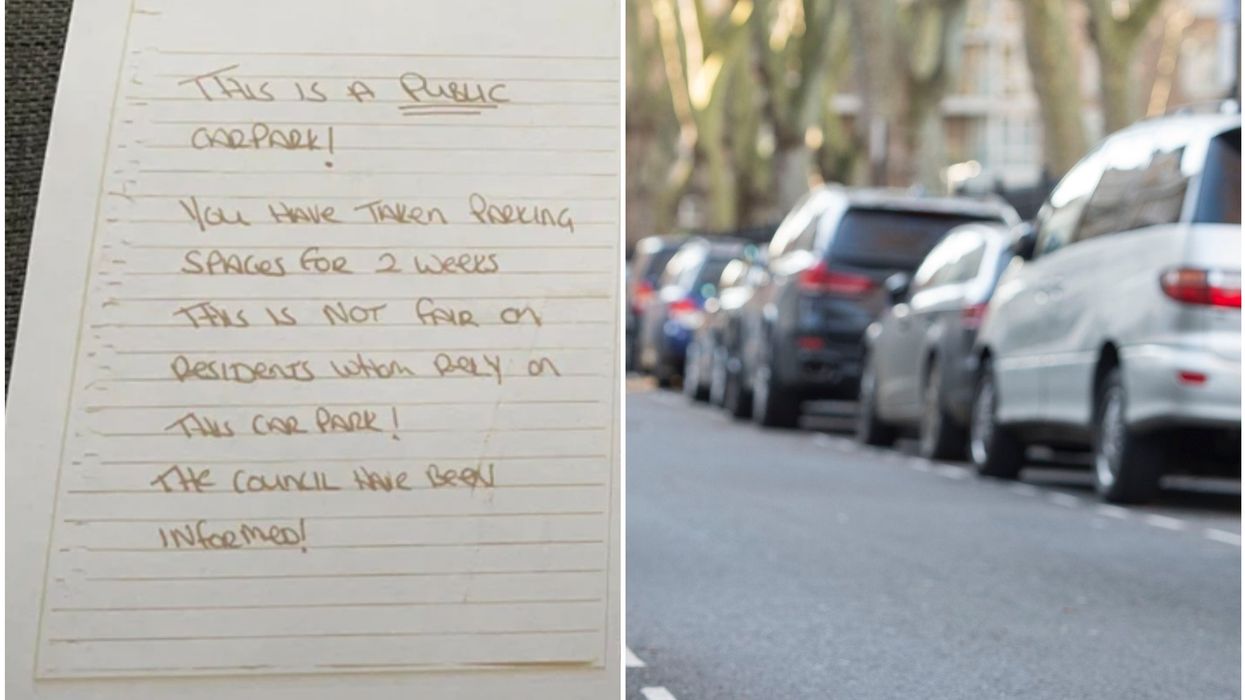 THIS IS A PUBLIC
CARPARK!
YOU HAVE TAKEN PARKING
SPACES FOR 2 WEEKS
THIS IS NOT FAIR ON
RESIDENTS WHOM RELY ON
THIS CAR PARK!
THE COUNCIL HAVE BEEN
INFORMED!